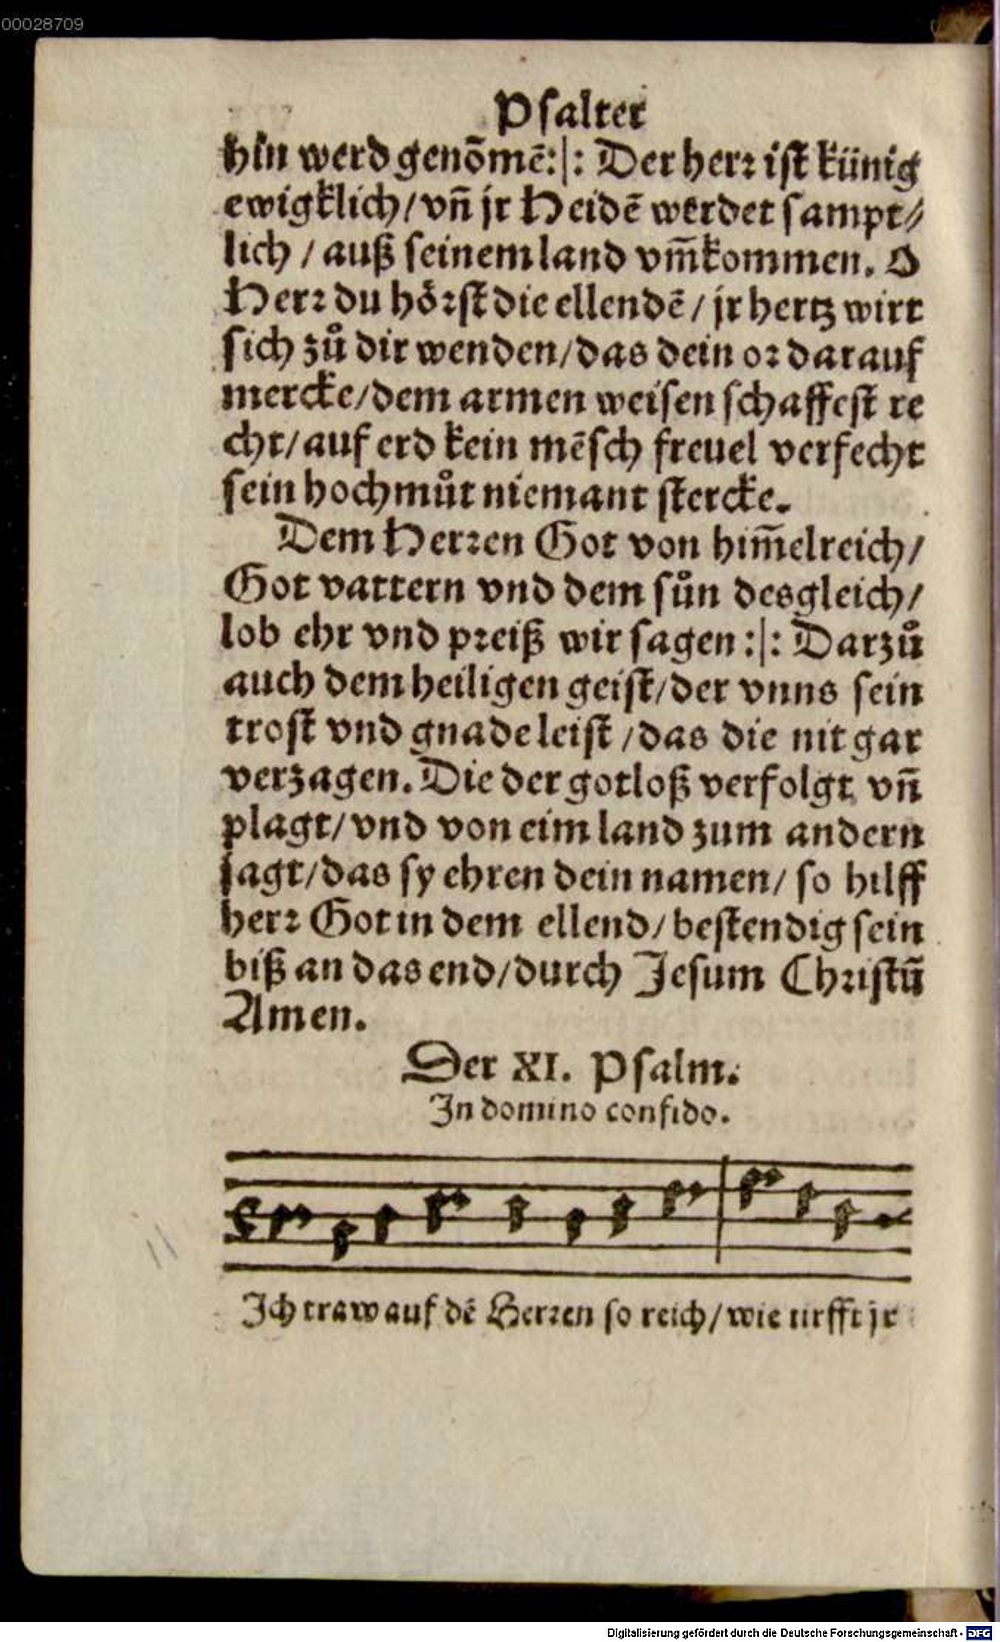 00028709
Psalter
hin werd genōmē:|: Der herꝛ ist künig
ewigklich/ vñ jr Heidē werdet sampt⸗
lich / auß seinem land vm̄kommen. O
Herꝛ du hőꝛst die ellendē / jr hertz wirt
sich zů dir wenden/das dein oꝛ darauf
mercke/dem armen weisen schaffest re
cht/auf erd kein mēsch freuel verfecht
sein hochmůt niemant stercke.
Dem Herꝛen Got von him̄elreich/
Got vattern vnd dem sůn desgleich/
lob ehr vnd pꝛeiß wir sagen :|: Darzů
auch dem heiligen geist/der vnns sein
trost vnd gnade leist /das die nit gar
verzagen. Die der gotloß verfolgt vñ
plagt/vnd von eim land zum andern
jagt/das sy ehren dein namen/ so hilff
herꝛ Got in dem ellend/ bestendig sein
biß an das end/durch Jesum Chꝛistū
Amen.
Der XI. Psalm.
In domino confido.
Ich traw auf dē Herꝛen so reich/ wie jr
11
Digitalisierung gefördert durch die Deutsche Forschungsgemeinschaft - DFG